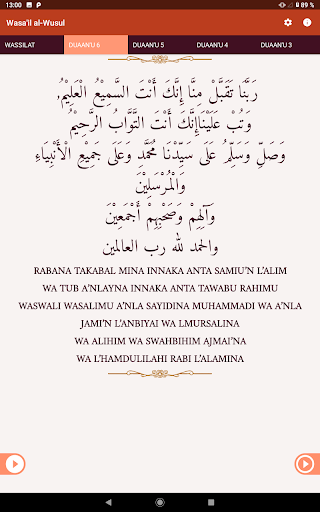 13:00 89 %
Wasa'il al-Wusul
WASSILAT DUAAN'U 6 DUAAN'U 5 DUAAN'U 4 DUAAN'U 3
رَبَّنَا تَقَبَّلْ مِنَّا إِنَّكَ أَنْتَ السَّمِيْعُ الْعَلِيْمُ,
وَتُبْ عَلَيْنَاإِنَّكَ أَنْتَ التَّوَّابُ الرَّحِيْمُ
وَصَلِّ وَسَلِّمُ عَلَى سَيِّدْنَا مُحَمَّدٍ وَعَلَى جَمِيْعِ الْأَنْبِيَاءِ
وَالْمُرْسَلِيْنَ
وَآلِهِمْ وَصَحْبِهِمْ أَجْمَعِيْنَ
والحمد لله رب العالمين
RABANA TAKABAL MINA INNAKA ANTA SAMIU'N L'ALIM
WA TUB A'NLAYNA INNAKA ANTA TAWABU RAHIMU
WASWALI WASALIMU A'NLA SAYIDINA MUHAMMADI WA A'NLA
JAMI'N L'ANBIYAI WA LMURSALINA
WA ALIHIM WA SWAHBIHIM AJMAI'NA
WA L'HAMDULILAHI RABI L'ALAMINA